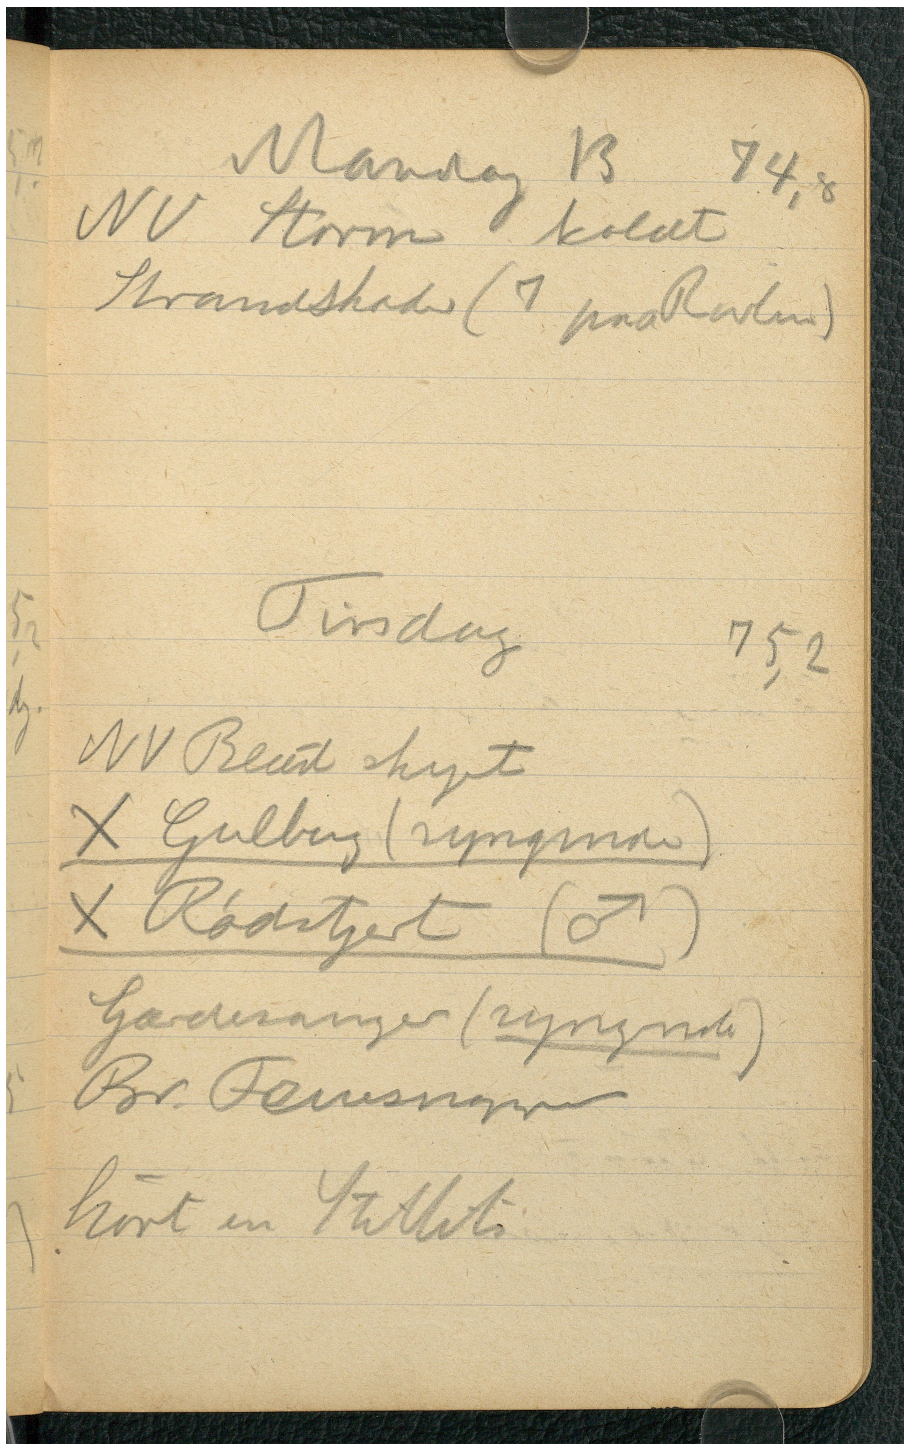 Mandag 13 74,8
NV Storm koldt
Strandskade (7 paa Revlen)
Tirsdag
75,2
NV Blæst skyet
X Gulbug (syngende)
X Rødstjert (♂)
Gærdesanger (syngende)
Br. Fluesnapper
hørt en Stillits